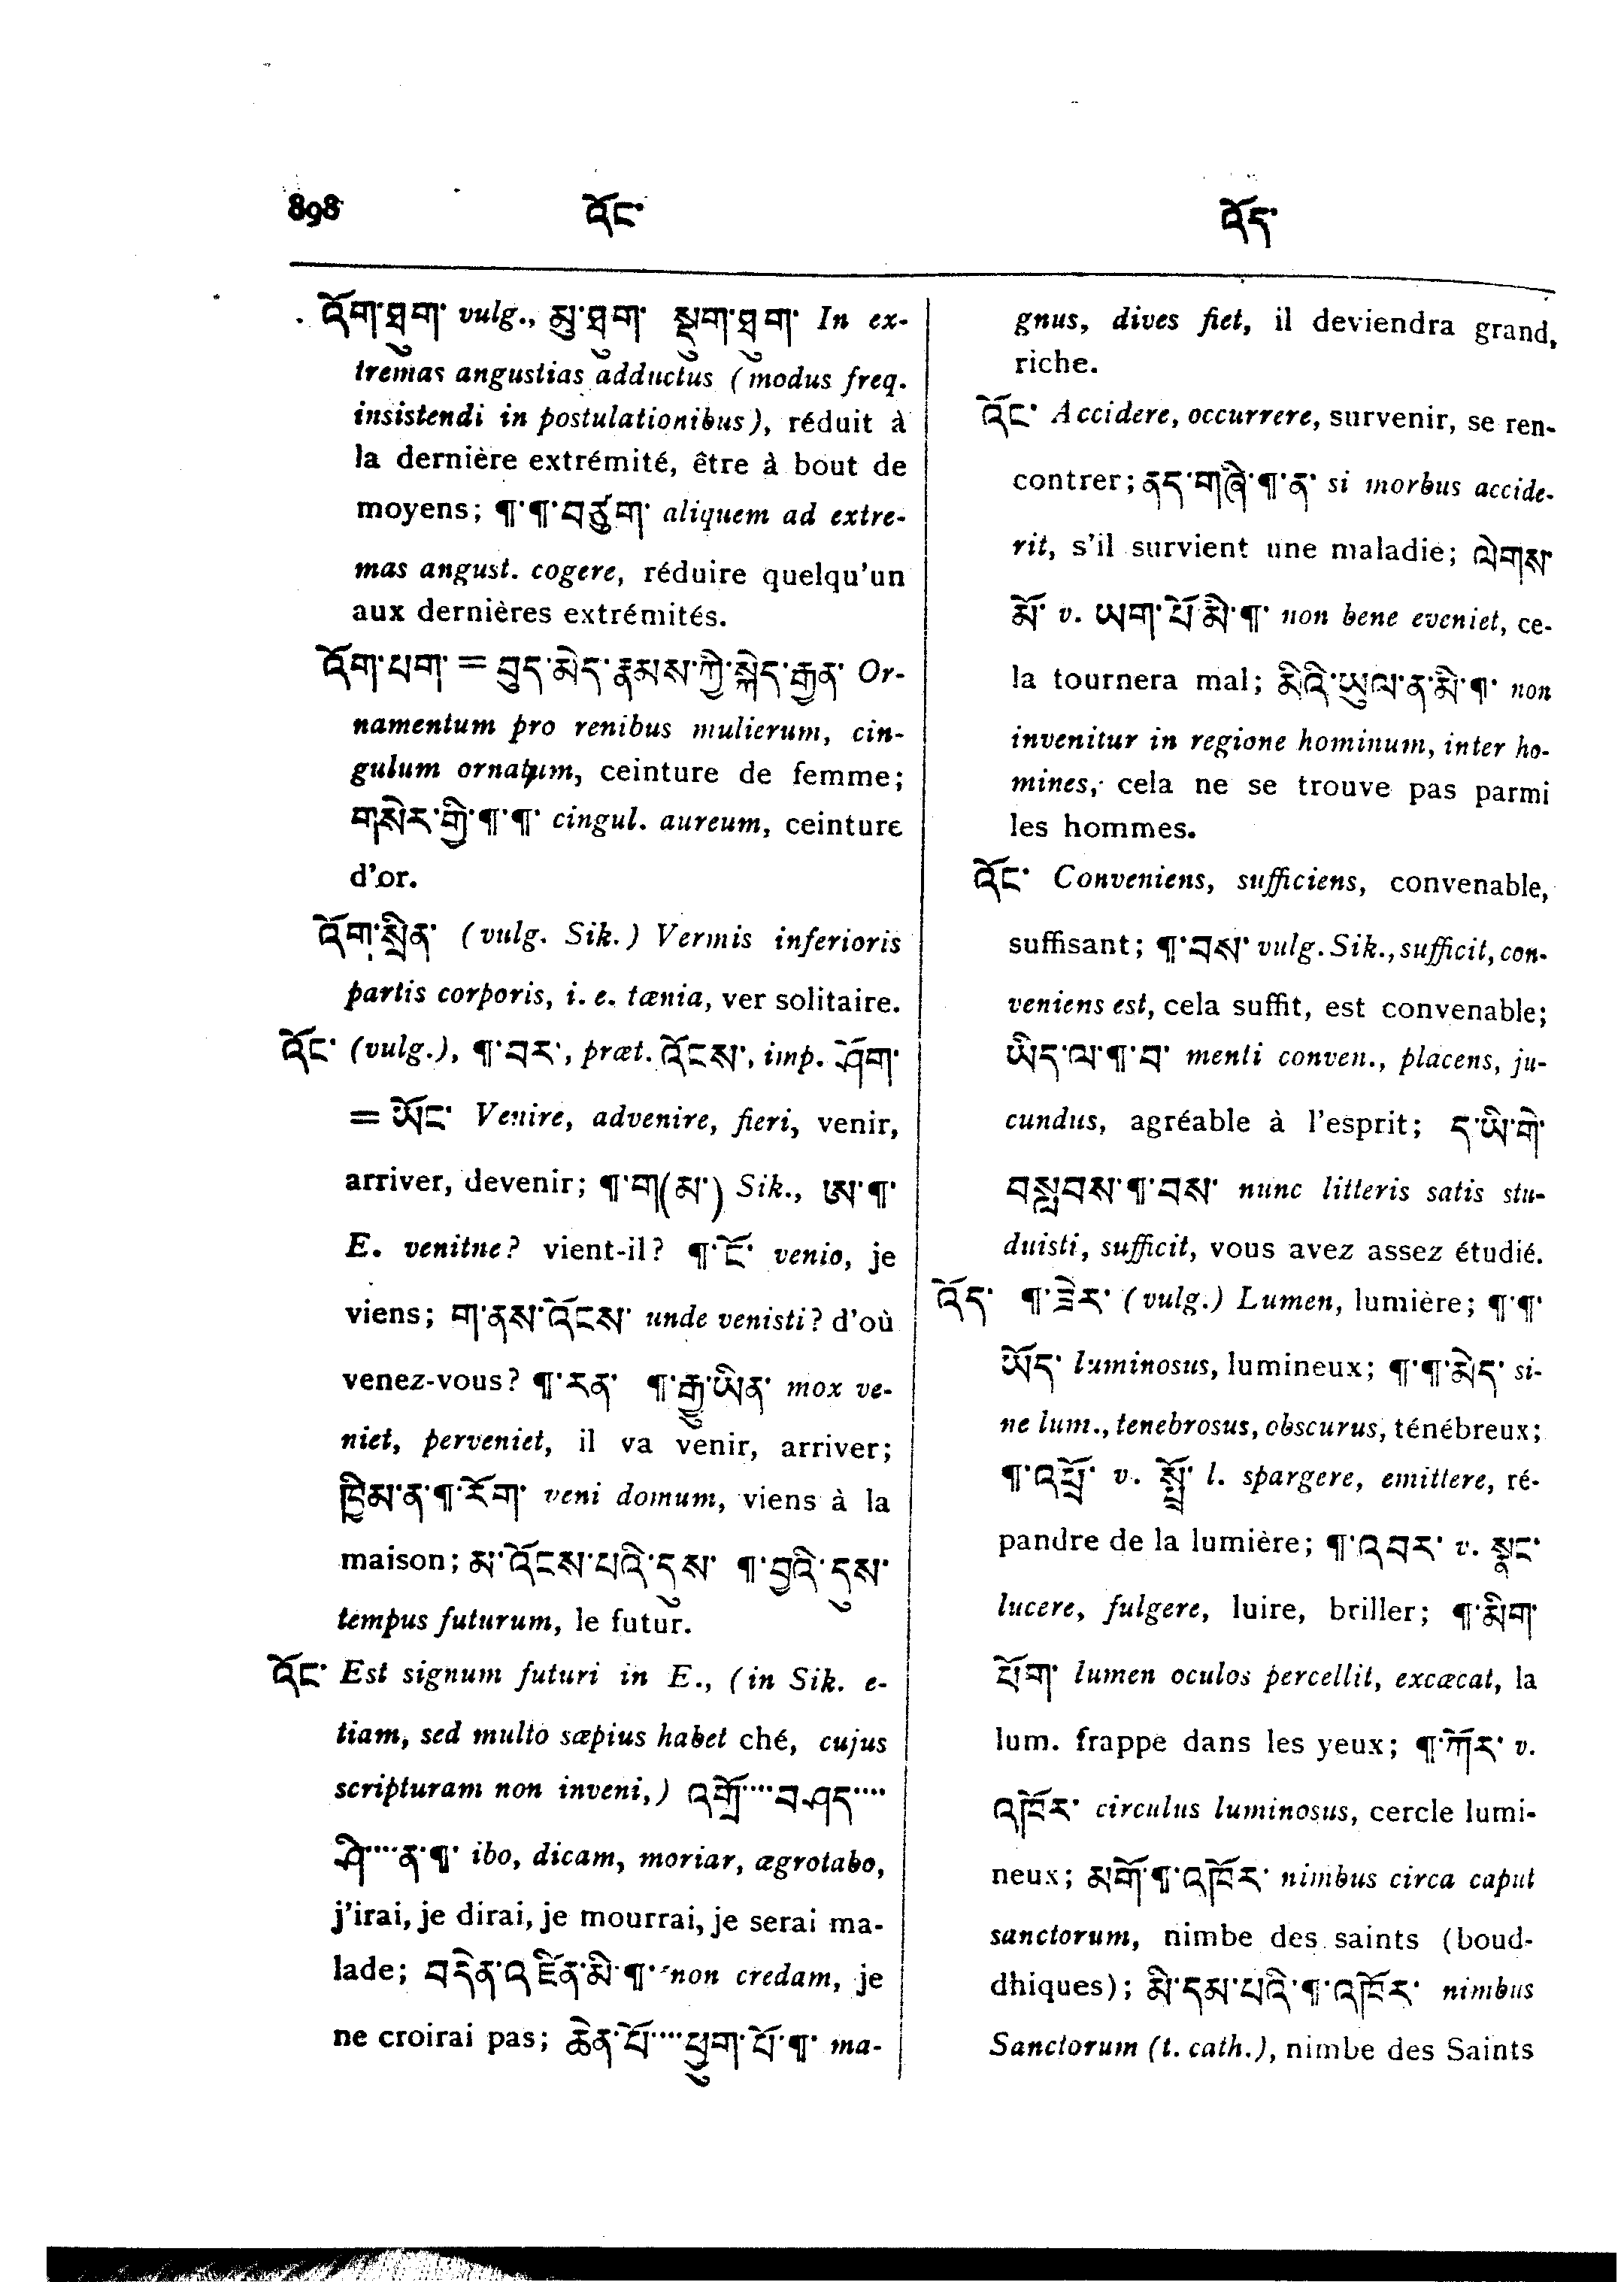 898 འོང་ འོད་
འོག་ཐུག་ vulg., མུ་ཐུག་ སྡུག་ཐུག་ In ex-
tremas angustias adductus (modus freq.
insistendi in postulationibus), réduit à
la dernière extrémité, être à bout de
moyens; ¶་¶་བཙུག་ aliquem ad extre-
mas angust. cogere, réduire quelqu'un
aux dernières extrémités.
འོག་པག་ = བུད་མེད་རྣམས་ཀྱི་སྐེད་རྒྱན་ Or-
namentum pro renibus mulierum, cin-
gulum ornatum, ceinture de femme;
གསེར་གྱི་¶་¶་ cingul. aureum, ceinture
d'or.
འོག་སྲིན་ (vulg. Sik.) Vermis inferioris
partis corporis, i. e. tænia, ver solitaire.
འོང་ (vulg.), ¶་བར་, præt. འོངས་, imp. ཤོག་
= ཡོང་ Venire, advenire, fieri, venir,
arriver, devenir; ¶་ག(མ་) Sik., ཨ་¶་
E. venitne? vient-il? ¶་ངོ་ venio, je
viens; ག་ནས་འོངས་ unde venisti? d'où
venez-vous? ¶་རན་ ¶་རྒྱུ་ཡིན་ mox ve-
niet, perveniet, il va venir, arriver;
ཁྱིམ་ན་¶་རོག་ veni domum, viens à la
maison; མ་འོངས་པའི་དུས་ ¶་བྱའི་དུས་
tempus futurum, le futur.
འོང་ Est signum futuri in E., (in Sik. e-
tiam, sed multo sæpius habet ché, cujus
scripturam non inveni,) འགྲོ་····བ་ཤད་····
ཤི་····ན་¶་ ibo, dicam, moriar, ægrotabo,
j'irai, je dirai, je mourrai, je serai ma-
lade; བདེན་འཛིན་མི་¶་ non credam, je
ne croirai pas; ཆེན་པོ་····ཕྱུག་པོ་¶་ ma-
gnus, dives fiet, il deviendra grand,
riche.
འོང་ Accidere, occurrere, survenir, se ren-
contrer; ནད་གཞི་¶་ན་ si morbus accide-
rit, s'il survient une maladie; ལེགས་
མོ་ v. ཡག་པོ་མི་¶་ non bene eveniet, ce-
la tournera mal; མིའི་ཡུལ་ན་མི་¶་ non
invenitur in regione hominum, inter ho-
mines, cela ne se trouve pas parmi
les hommes.
འོང་ Conveniens, sufficiens, convenable,
suffisant; ¶་བས་ vulg. Sik., sufficit, con-
veniens est, cela suffit, est convenable;
ཡིད་ལ་¶་བ་ menti conven., placens, ju-
cundus, agréable à l'esprit; ད་ཡི་གེ་
བསླབས་¶་བས་ nunc litteris satis stu-
duisti, sufficit, vous avez assez étudié.
འོད་ ¶་ཟེར་ (vulg.) Lumen, lumière; ¶་¶་
ཡོད་ luminosus, lumineux; ¶་¶་མེད་ si-
ne lum., tenebrosus, obscurus, ténébreux;
¶་འཕྲོ་ v. སྤྲོ་ l. spargere, emittere, ré-
pandre de la lumière; ¶་འབར་ v. སྣང་
lucere, fulgere, luire, briller; ¶་མིག་
ཕོག་ lumen oculos percellit, excæcat, la
lum. frappe dans les yeux; ¶་ཀོར་ v.
འཁོར་ circulus luminosus, cercle lumi-
neux; མགོ་¶་འཁོར་ nimbus circa caput
sanctorum, nimbe des saints (boud-
dhiques); མི་དམ་པའི་¶་འཁོར་ nimbus
Sanctorum (t. cath.), nimbe des Saints